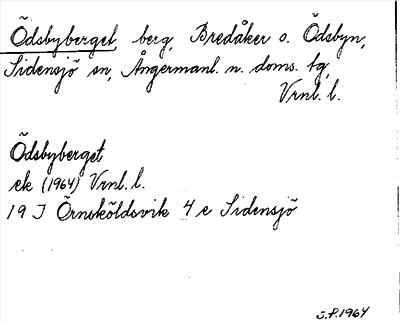 Ödsbyberget, berg, Bredåker o. Ödsbyn,
Sidensjö sn, Ångermanl. n. doms. tg,
Vrnl. l.
Ödsbyberget
ek (1964) Vrnl. l.
19 J Örnsköldsvik 4 e Sidensjö
S.P. 1964